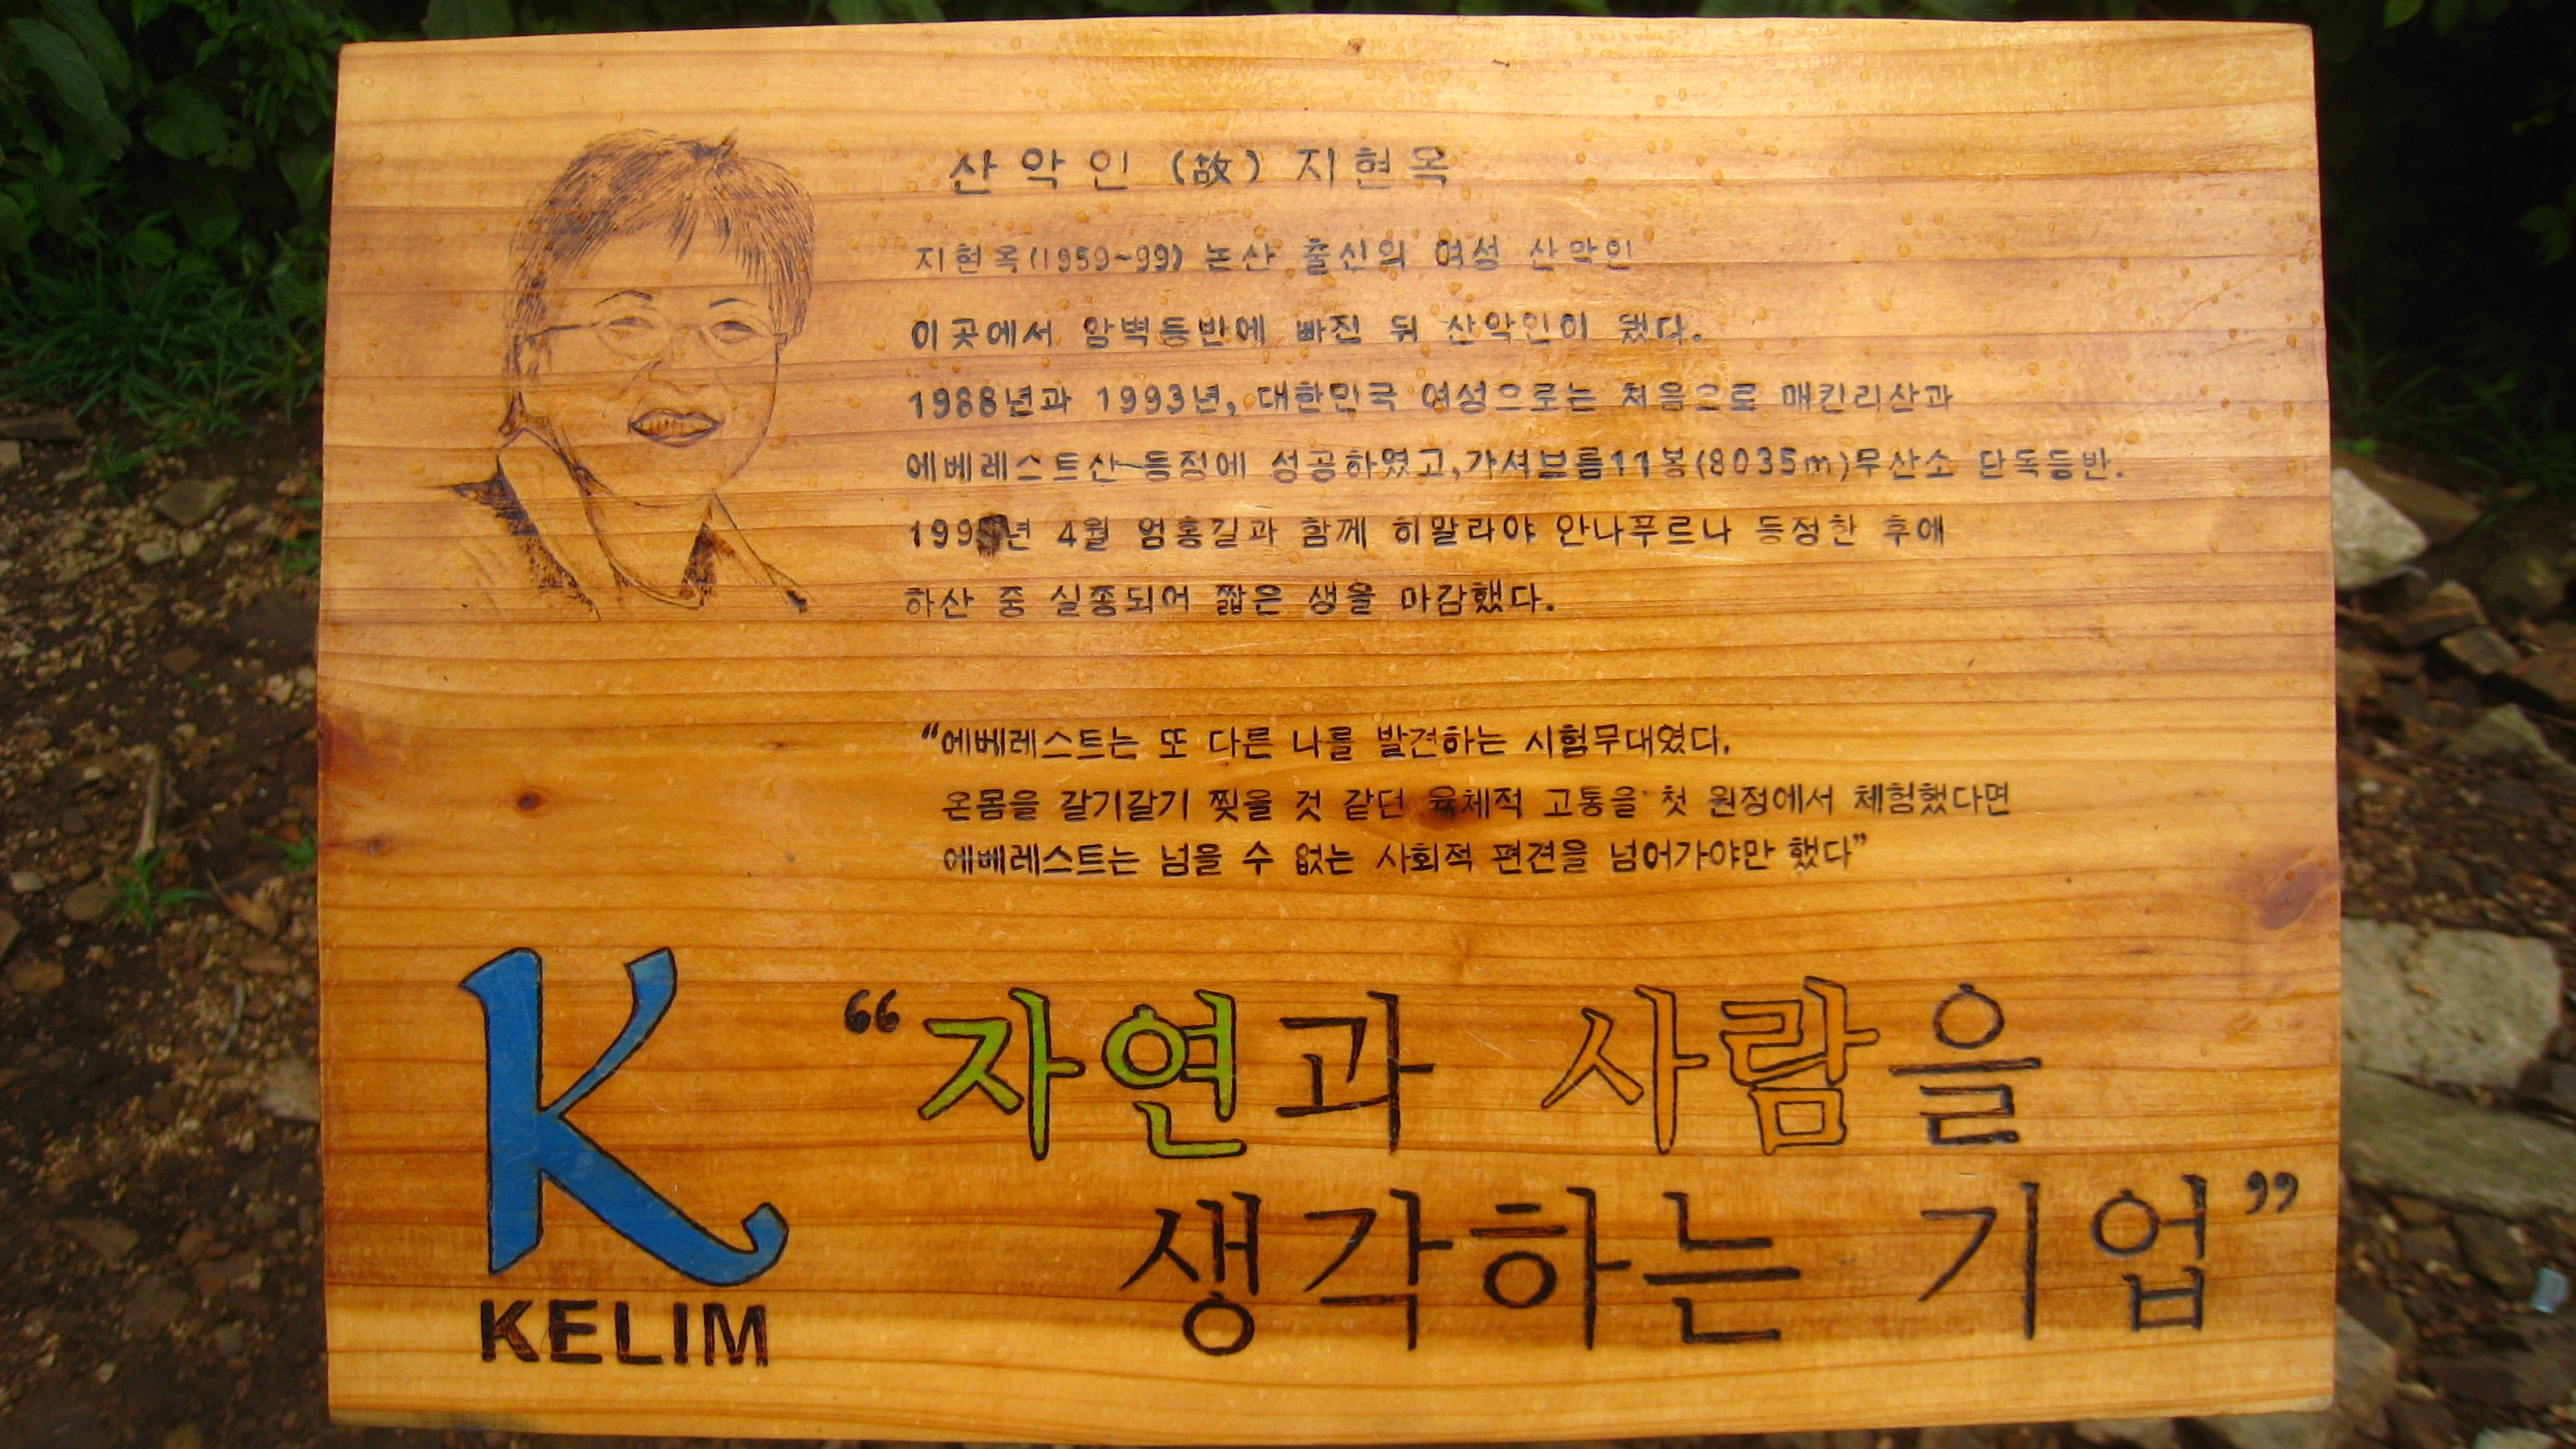 산악인 (故) 지현옥
지현옥(1959~99) 논산 출신의 여성 산악인
이곳에서 암벽등반에 빠진 뒤 산악인이 됐다.
1988년과 1993년, 대한민국 여성으로는 처음으로 매킨리산과
에베레스트산 등정에 성공하였고,가셔브룸11봉(8035m)무산소 단독등반.
4월 엄홍길과 함께 히말라야 안나푸르나 등정한 후에
하산 중 실종되어 짧은 생을 마감했다.
“에베레스트는 또 다른 나를 발견하는 시험무대였다.
온몸을 갈기갈기 찢을 것 같던 육체적 고통을 첫 원정에서 체험했다면
에베레스트는 넘을 수 없는 사회적 편견을 넘어가야만 했다”
“자연과 사람을
생각하는 기업”
KELIM